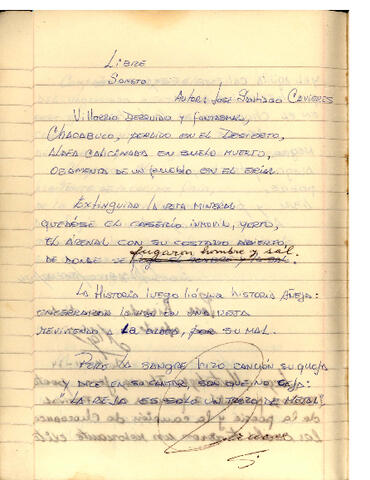 LIBRE
SONETO
AUTOR: JOSÉ SANTIAGO CAVIERES
VILLORRIO DERRUIDO Y FANTASMAL,
CHACABUCO, PERDIDO EN EL DESIERTO,
ALDEA CALICINADA EN SUELO MUERTO,
OSAMENTA DE UN PUEBLO EN EL ERIAL.
EXTINGUIDA LA VETA MINERAL
QUEDÓSE EL CASERÍO INMOVIL, YERTO,
EL ARENAL CON SU COSTADO ABIERTO,
DE DONDE SE fugaron hombre y sal.
LA HISTORIA LUEGO HISTORIA AÑEJA:
LA ALDEA, POR SU MAL.
PERO LA SANGRE HIZO CANCIÓN SU QUEJA
Y DICE EN SU CANTAR, SON QUE NO CEJA:
"LA REJA ES SOLO UN TROZO DE METAL"